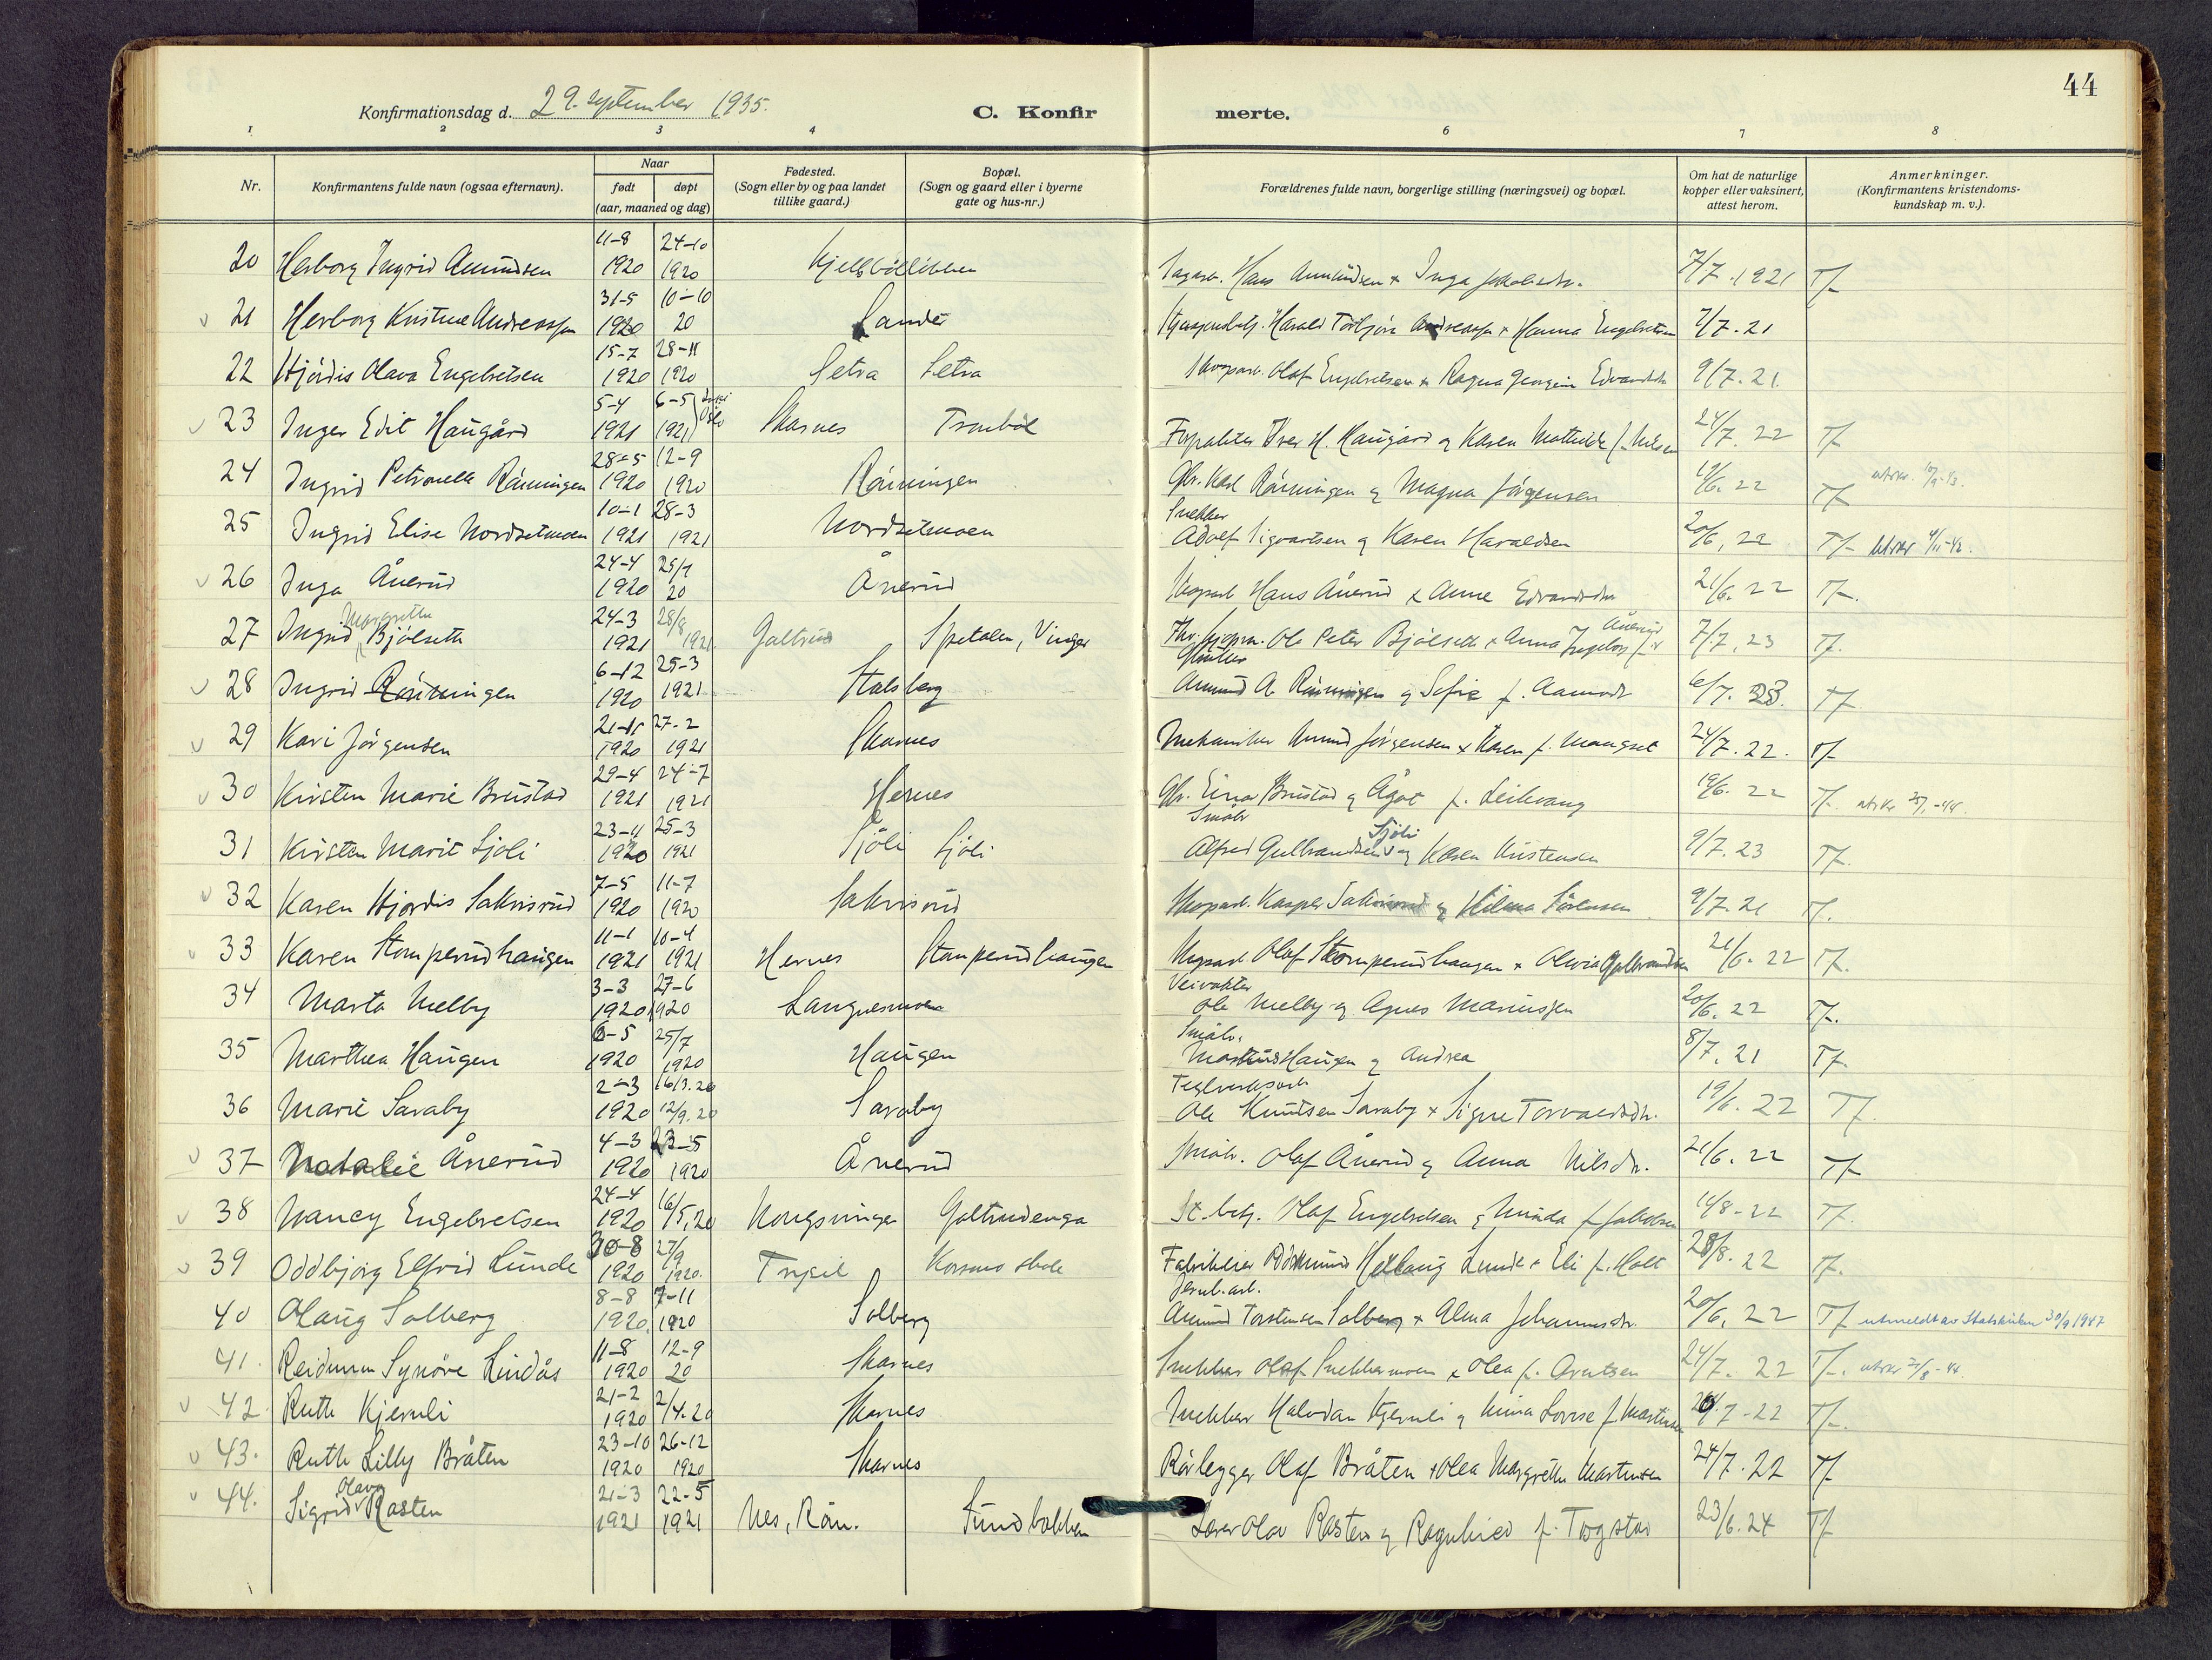 44
Konfirmationsdag d. 29. september 1935. C. Konfir merte.
1 2 3 4 6 7 8
Nr. Konfirmantens fulde navn (ogsaa efternavn). Naar født døpt (aar, maaned og dag) Fødested. (Sogn eller by og paa landet tillike gaard.) Bopæl. (Sogn og gaard eller i byerne gate og hus-nr.) Forældrenes fulde navn, borgerlige stilling (næringsvei) og bopæl. Om hat de naturlige kopper eller vaksinert, attest herom. Anmerkninger. (Konfirmantens kristendoms-kundskap m. v.).
20 Herborg Ingrid Amundsen 11-8 1920 24-10 1920 Hans Amundsen & Inga 7/7.1921 Tf
21 Herborg Kristine Andreassen 31-5 1920 10-10 20 Sander Harald Torbjørn Andreassen & Hanna Engebretsen 7/7.21
22 Hjördis Olava Engebretsen 15-7 1920 28-11 1920 Setra Setra Skogsarb. Olaf Engebretsen & Ragna 9/7.21
23 Inger Edit Haugård 5-4 1921 6-5 1921 Skarnes Iver H. Haugård og Karen Mathilde f. Nilsen 24/7.22 Tf
24 Ingrid Petronella Rönningen 28-5 1920 12-9 1920 Rönningen Gbr. Karl Rönningen og Magna Jörgensen 19/6.22 Tf
25 Ingrid Elise Nordsetmoen 10-1 1921 28-3 1921 Nordsetmoen Snekker Adolf Sigvartsen og Karen Haraldsen 20/6.22 Tf
26 Inga Ånerud 24-4 1920 20 Ånerud Skogsarb Hans Ånerud & Anne Edvardsdtr 21/6.22 Tf.
27 Ingrid Margrethe Bjölseth 24-3 1921 28/8 1921. Galtrud Spetalen, Vinger Ole Peter Bjölseth & Anna Ingeborg f. Ånerud 7/7.23 Tf.
28 Ingrid Rönningen 6-12 1920 25-3 1921 Stalsberg Amund A. Rönningen og Sofie f. Aamodt 6/7.23. Tf
29 Kari Jörgensen 21-11 1920 27-2 1921 Skarnes Mekaniker Amund Jörgensen & Karen f. Mangset 24/7.22. Tf
30 Kirsten Marie Brustad 29-4 1921 24-7 1921 Hernes Gbr. Einar Brustad og Ågot f. Leikvang 19/6.22 Tf.
31 Kirsten Marie Sjöli 23-11 1920 25-3 1921 Sjöli Sjöli Småbr Alfred Gulbrandsen Sjöli og Karen Kristensen 9/7.23 Tf.
32 Karen Hjördis Sakrisrud 7-5 1920 11-7 1920 Sakrisrud Skogsarb. Kasper Sakrisrud og Hilma Sörensen 9/7.21 Tf.
33 Karen Stomperudhaugen 11-1 1921 10-4 1921 Hernes Stomperudhaugen Skogsarb Olaf Stomperudhaugen & Olivia Gulbrandsen 21/6.22 Tf.
34 Marta Melby 3-3 1920 27-6 1920 Langnesmoen Veivokter Ole Melby og Agnes Mariussen 20/6.22 Tf.
35 Marthea Haugen 6-5 1920 25/7 1920 Haugen Småbr. Martinus Haugen og Andrea 8/7.21 Tf.
36 Marie Saraby 2-3 1920 16/3.20 12/9.20 Saraby Teglverksarb Ole Knutsen Saraby & Signe Torvaldsdtr. 19/6.22 Tf.
37 Natalie Ånerud 4-3 1920 23-5 1920 Ånerud Småbr. Olaf Ånerud og Anna Nilsdtr. 21/6.22 Tf
38 Nancy Engebretsen 24-4 1920 16/5.20 Kongsvinger Galtrudenga St. betj. Olaf Engebretsen og Minda f. Jakobsen 11/8-22 Tf.
39 Oddbjörg Elfrid Lunde 30-8 1920 27/9 1920. Trysil Korsmo skole Lunde & Eli f. Holt 28/8.22 Tf.
40 Olaug Solberg 8-8 1920. 7-11 1920 Solberg Jernb.arb. Amund Torstensen Solberg & Alma Johannesdtr. 20/6.22 Tf utmeldt av Statskirken 30/9 1947
41. Reidunn Synöve Lindås 11-8 1920 12-9 20 Skarnes Snekker Olaf Snekkermoen & Olea f. Arntsen 24/7.22 Tf.
42. Ruth Kjernli 21-2 1920 2/4.20 Skarnes Snekker Halvdan Kjernli og Mina Lovise f. Martinsen 24/7-22 Tf.
43. Ruth Lilly Bråten 23-10 1920 26-12 1920 Skarnes Rörlegger Olaf Bråten & Olea Margrethe Martinsen 24/7.22 Tf
44. Sigrid Olava Rasten 21-3 1921 22-5 1921 Nes, Rom. Sundbakken Lærer Olav Rasten og Ragnhild f. Togstad 23/6.24 Tf